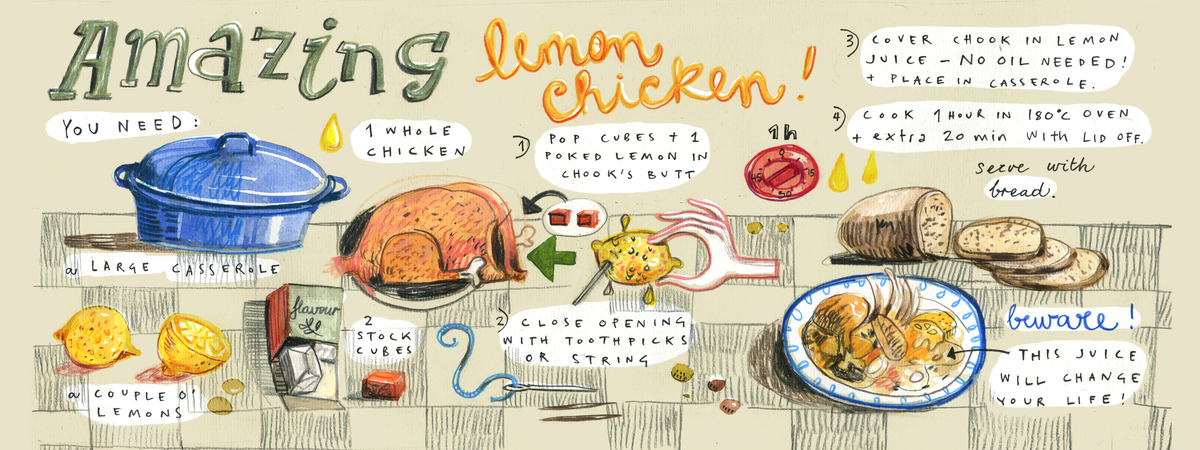 Amazing
lemon
chicken!
YOU NEED:
1 WHOLE
CHICKEN
a LARGE CASSEROLE
a COUPLE O'
LEMONS
flavour
2
STOCK
CUBES
1) POP CUBES + 1
POKED LEMON IN
CHOOK'S BUTT
2) CLOSE OPENING
WITH TOOTHPICKS
OR STRING
3) COVER CHOOK IN LEMON
JUICE – NO OIL NEEDED!
+ PLACE IN CASSEROLE.
1h
0
45 15
30
4) COOK 1 HOUR IN 180°C OVEN
+ extra 20 min WITH LID OFF.
serve with
bread.
beware!
THIS JUICE
WILL CHANGE
YOUR LIFE!